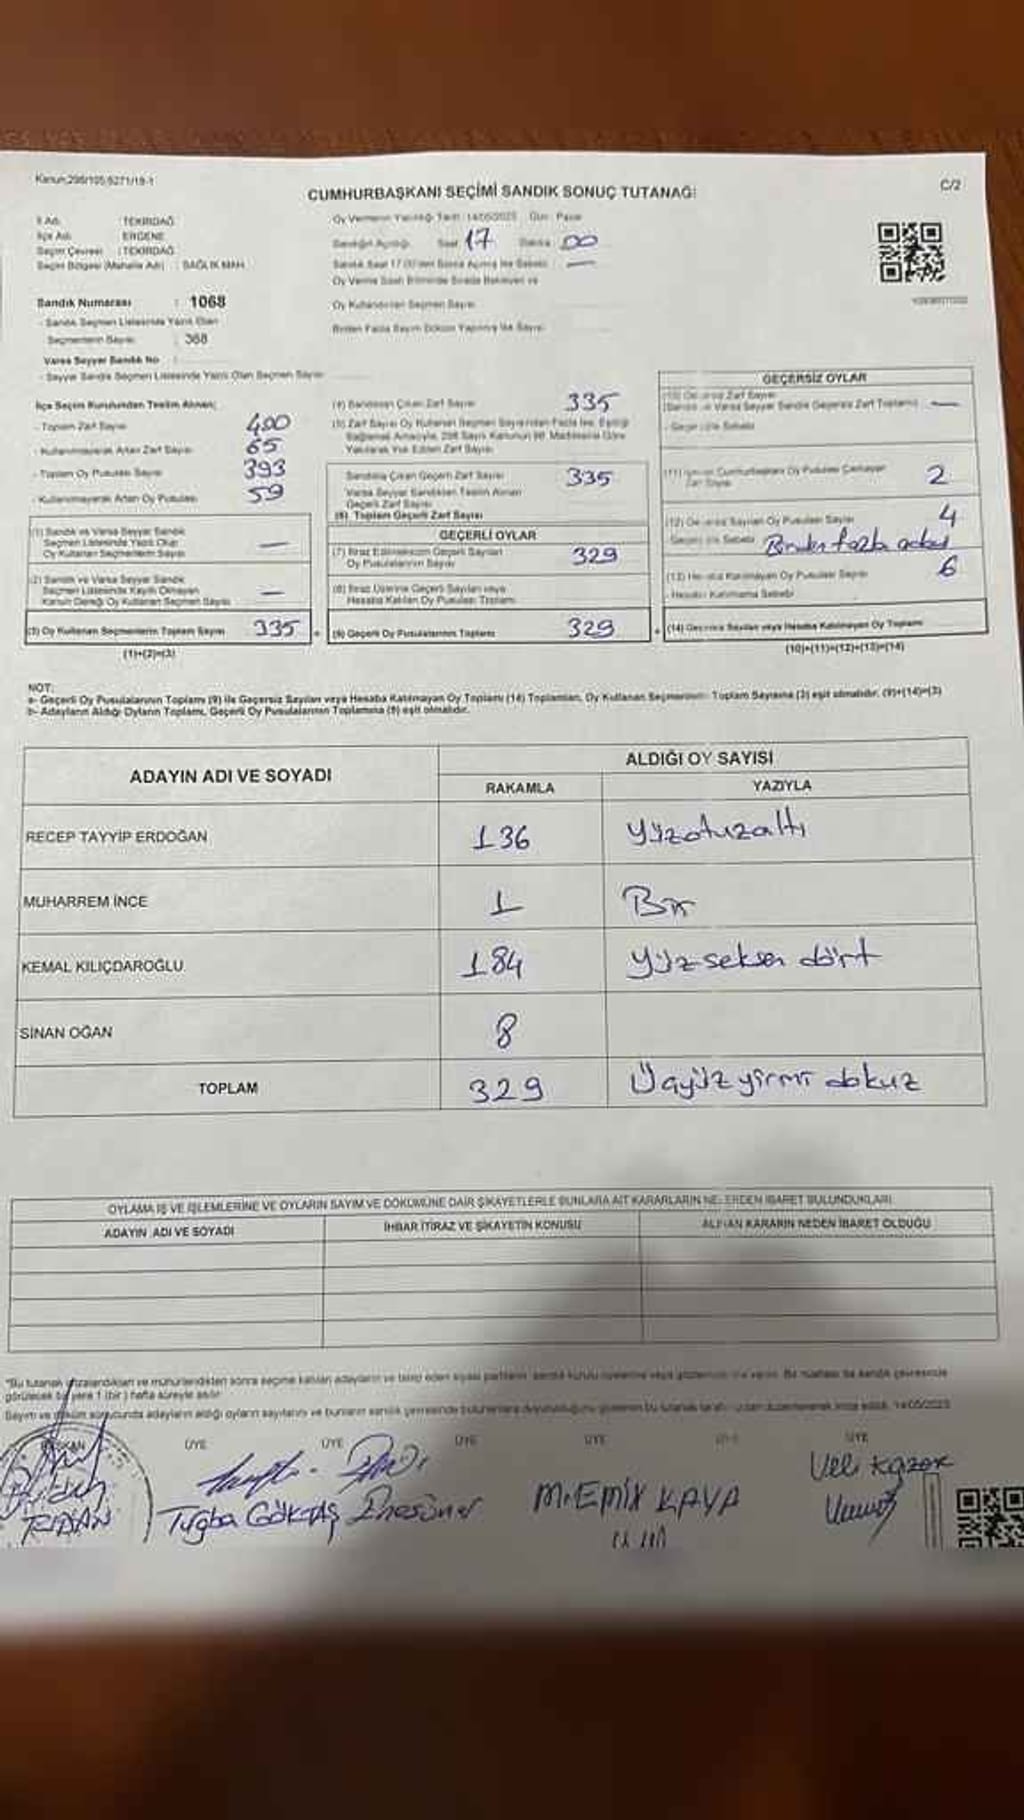 Kanun:298/105,6271/19-1
C/2
CUMHURBAŞKANI SEÇİMİ SANDIK SONUÇ TUTANAĞI
İl Adı : TEKİRDAĞ
İlçe Adı : ERGENE
Seçim Çevresi : TEKİRDAĞ
Seçim Bölgesi (Mahalle Adı) : SAĞLIK MAH
Oy Vermenin Yapıldığı Tarih : 14/05/2023 Gün : Pazar
Sandığın Açıldığı Saat 17 Dakika 00
Sandık Saat 17.00'den Sonra Açılmış İse Sebebi —
Oy Verme Saati Bitiminde Sırada Bekleyen ve
Oy Kullandırılan Seçmen Sayısı
Birden Fazla Sayım Döküm Yapılmış İse Sayısı
Sandık Numarası : 1068
- Sandık Seçmen Listesinde Yazılı Olan
Seçmenlerin Sayısı : 368
Varsa Seyyar Sandık No :
- Seyyar Sandık Seçmen Listesinde Yazılı Olan Seçmen Sayısı
İlçe Seçim Kurulundan Teslim Alınan;
- Toplam Zarf Sayısı 400
- Kullanılmayarak Artan Zarf Sayısı 65
- Toplam Oy Pusulası Sayısı 393
- Kullanılmayarak Artan Oy Pusulası 59
(1) Sandık ve Varsa Seyyar Sandık
Seçmen Listesinde Yazılı Olup
Oy Kullanan Seçmenlerin Sayısı —
(2) Sandık ve Varsa Seyyar Sandık
Seçmen Listesinde Kayıtlı Olmayan
Kanun Gereği Oy Kullanan Seçmen Sayısı —
(3) Oy Kullanan Seçmenlerin Toplam Sayısı 335
(1)+(2)=(3)
(4) Sandıktan Çıkan Zarf Sayısı 335
(5) Zarf Sayısı Oy Kullanan Seçmen Sayısından Fazla İse, Eşitliği
Sağlamak Amacıyla, 298 Sayılı Kanunun 98. Maddesine Göre
Yakılarak Yok Edilen Zarf Sayısı
Sandıkta Çıkan Geçerli Zarf Sayısı 335
Varsa Seyyar Sandıktan Teslim Alınan
Geçerli Zarf Sayısı
(6) Toplam Geçerli Zarf Sayısı
GEÇERLİ OYLAR
(7) İtiraz Edilmeksizin Geçerli Sayılan
Oy Pusulalarının Sayısı 329
(8) İtiraz Üzerine Geçerli Sayılan veya
Hesaba Katılan Oy Pusulası Toplamı
(9) Geçerli Oy Pusulalarının Toplamı 329
GEÇERSİZ OYLAR
(10) Geçersiz Zarf Sayısı
(Sandık ve Varsa Seyyar Sandık Geçersiz Zarf Toplamı) —
- Geçersizlik Sebebi
(11) İçinden Cumhurbaşkanı Oy Pusulası Çıkmayan
Zarf Sayısı 2
(12) Geçersiz Sayılan Oy Pusulası Sayısı 4
Geçersizlik Sebebi Birden fazla
(13) Hesaba Katılmayan Oy Pusulası Sayısı 6
- Hesaba Katılmama Sebebi
(14) Geçersiz Sayılan veya Hesaba Katılmayan Oy Toplamı
(10)+(11)+(12)+(13)=(14)
NOT:
a- Geçerli Oy Pusulalarının Toplamı (9) ile Geçersiz Sayılan veya Hesaba Katılmayan Oy Toplamı (14) Toplamları, Oy Kullanan Seçmenlerin Toplam Sayısına (3) eşit olmalıdır. (9)+(14)=(3)
b- Adayların Aldığı Oyların Toplamı, Geçerli Oy Pusulalarının Toplamına (9) eşit olmalıdır.
ADAYIN ADI VE SOYADI
ALDIĞI OY SAYISI
RAKAMLA YAZIYLA
RECEP TAYYİP ERDOĞAN 136 Yüzotuzaltı
MUHARREM İNCE 1 Bir
KEMAL KILIÇDAROĞLU 184 Yüzseksen dört
SİNAN OĞAN 8
TOPLAM 329 Üçyüz yirmi dokuz
OYLAMA İŞ VE İŞLEMLERİNE VE OYLARIN SAYIM VE DÖKÜMÜNE DAİR ŞİKAYETLERLE BUNLARA AİT KARARLARIN NELERDEN İBARET BULUNDUKLARI
ADAYIN ADI VE SOYADI İHBAR İTİRAZ VE ŞİKAYETİN KONUSU ALINAN KARARIN NEDEN İBARET OLDUĞU
görülecek bir yere 1 (bir) hafta süreyle asılır.
BAŞKAN ÜYE ÜYE ÜYE ÜYE ÜYE ÜYE
Tuğba GÖKTAŞ
M.EMİN KAYA
Veli